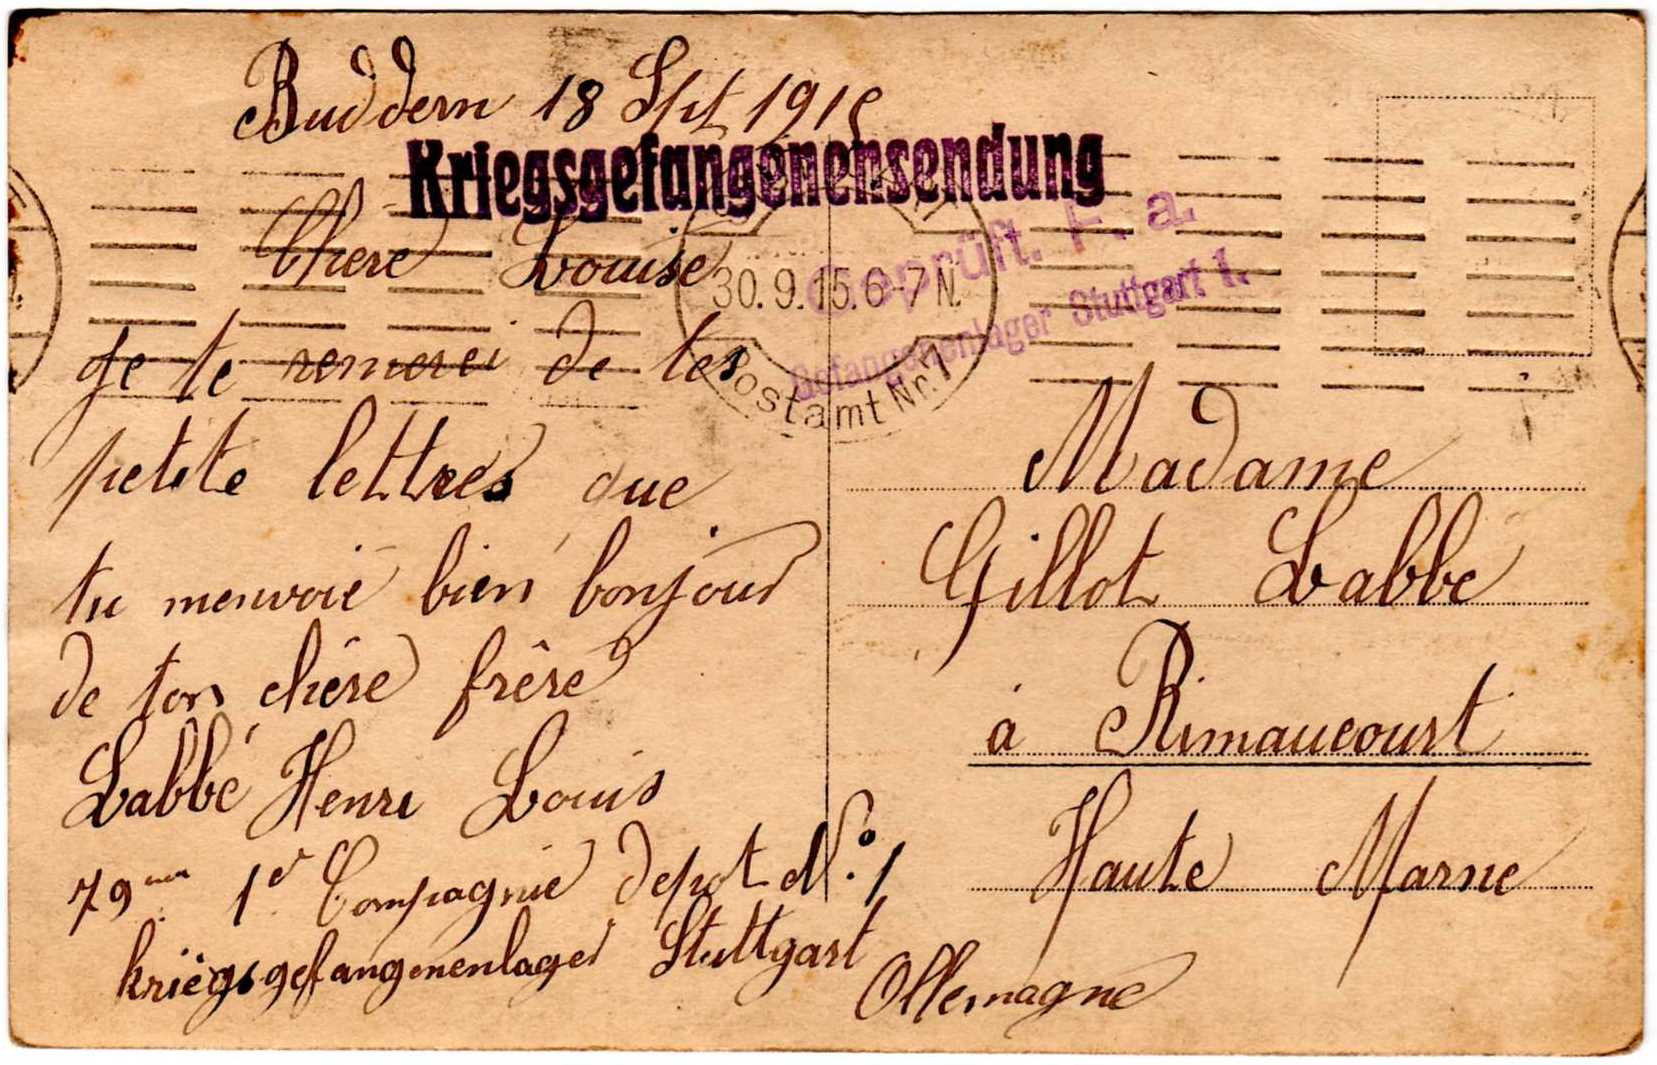 Buddern 18 Spt 1915
Kriegsgefangenensendung
Geprüft. F. a.
Gefangenenlager Stuttgart 1.
30.9.15.6-7 N.
Postamt Nr. 1
Chere Louise
je te remerci de tes
petite lettres que
tu menvoie bien bonjour
de ton chère frêre
Labbé Henri Louis
79me 1er Compagnie depot No. 1
kriegsgefangenenlager Stuttgart
Allemagne
Madame
Gillot Labbe
à Rimaucourt
Haute Marne